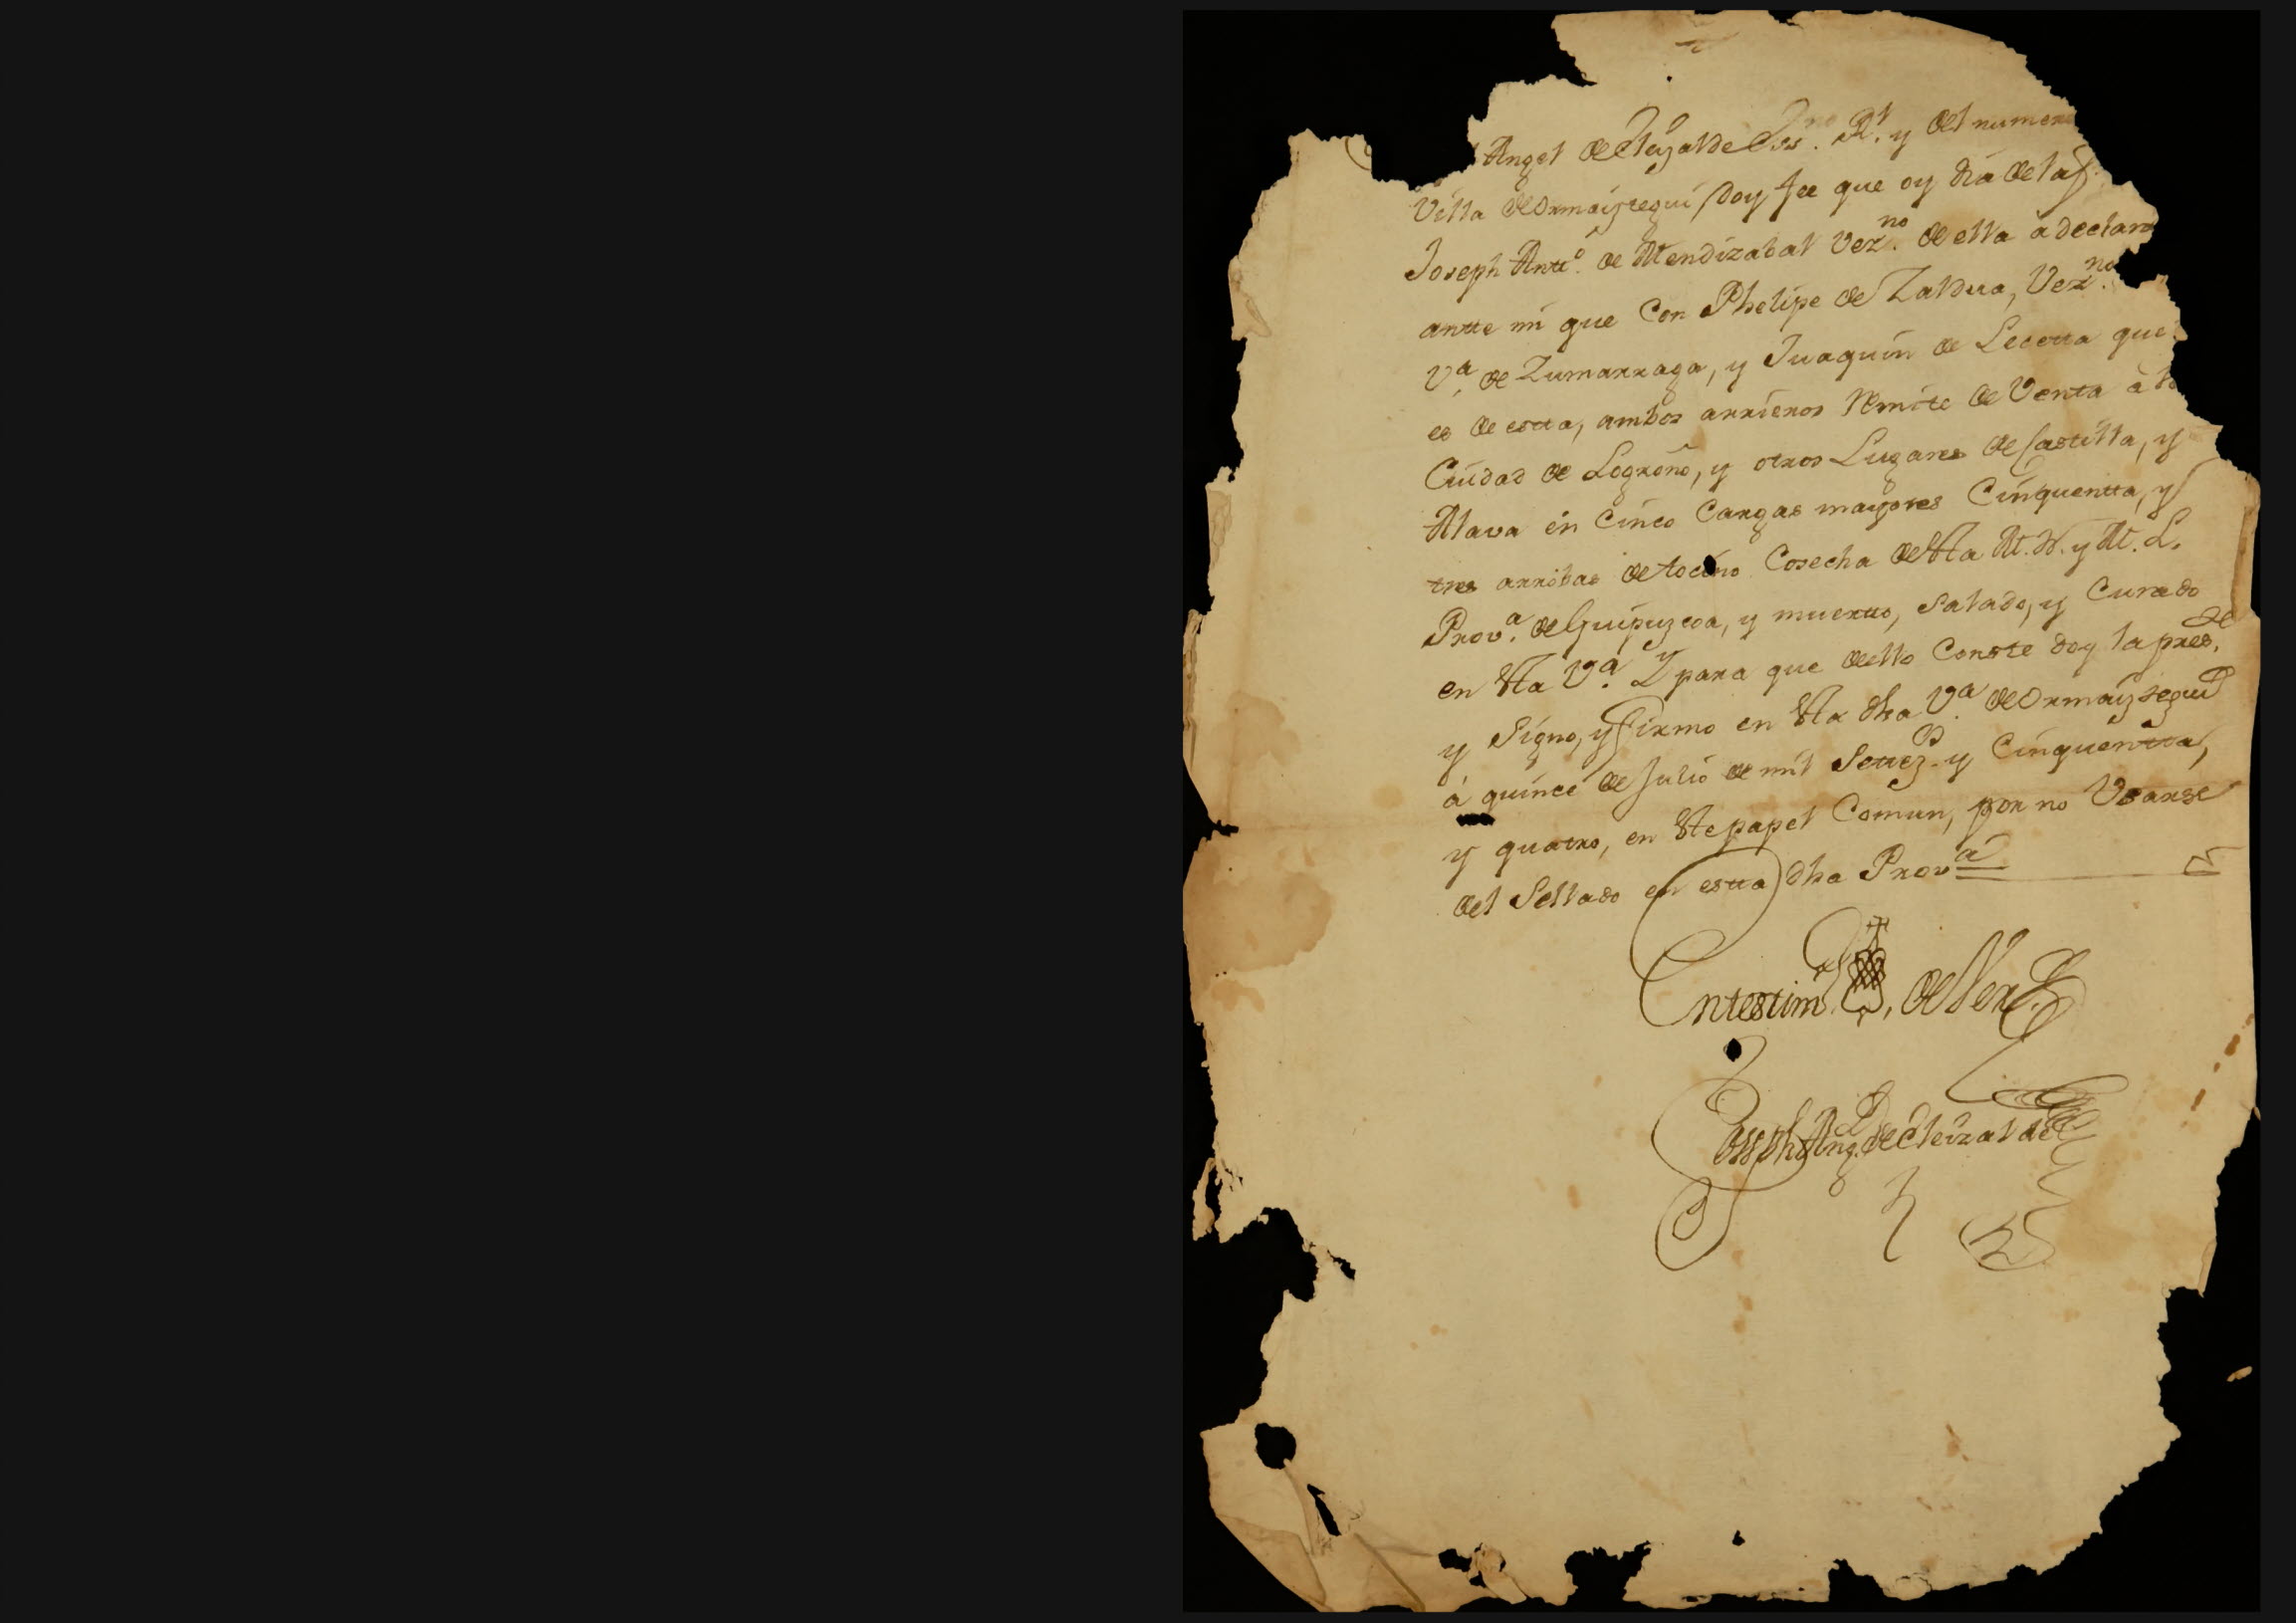 Angel de Eleyzalde Ess.no R.l y del numero
Villa de Ormaiztegui, doy fee que oy dia de la f
Joseph Antt.o de Mendizabal Vez.no de ella a declar
antte mi que con Phelipe de Zaldua, Vez.no
V.a de Zumarraga, y Juaquin de Lecetta que
es de estta, ambos arrieros Remite de Venta à la
Ciudad de Logroño, y otros Lugares de Castilla, y
Alava en cinco Cargas mayores Cinquentta, y
tres arrobas de tocino Cosecha de Sta M. N. y M. L.
Prov.a de Guipuzcoa, y muertto, salado, y Curado
en Sta V.a Y para que dello Conste doy la pres.te
y Signo, y firmo en Sta dha V.a de Ormaiztegui
á quince de Julio de mil Settez.s y Cinquentta,
y quatro, en Ste papel Comun, por no Usarse
del Sellado en estta dha Prov.a
En testim.o de Ver.d
Joseph Ang.l de Eleizalde